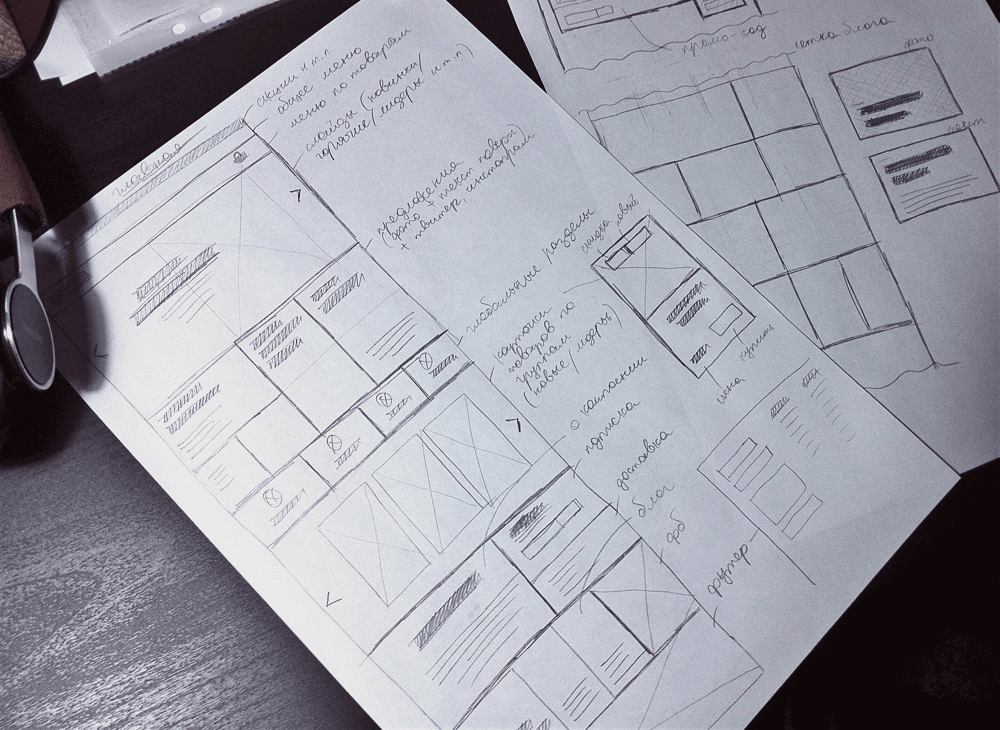 главная
акции и т.п.
общее меню
меню по товарам
слайды (новинки/
горячие/лидеры и т.п.)
предложения
(фото + текст поверх)
+ твиттер, инстаграм
глобальные разделы
карточки
товаров по
группам
(новые/лидеры)
о компании
подписка
доставка
блог
фб
футер
скидка
новый
цена
купить
промо-код
сетка блога
фото
текст